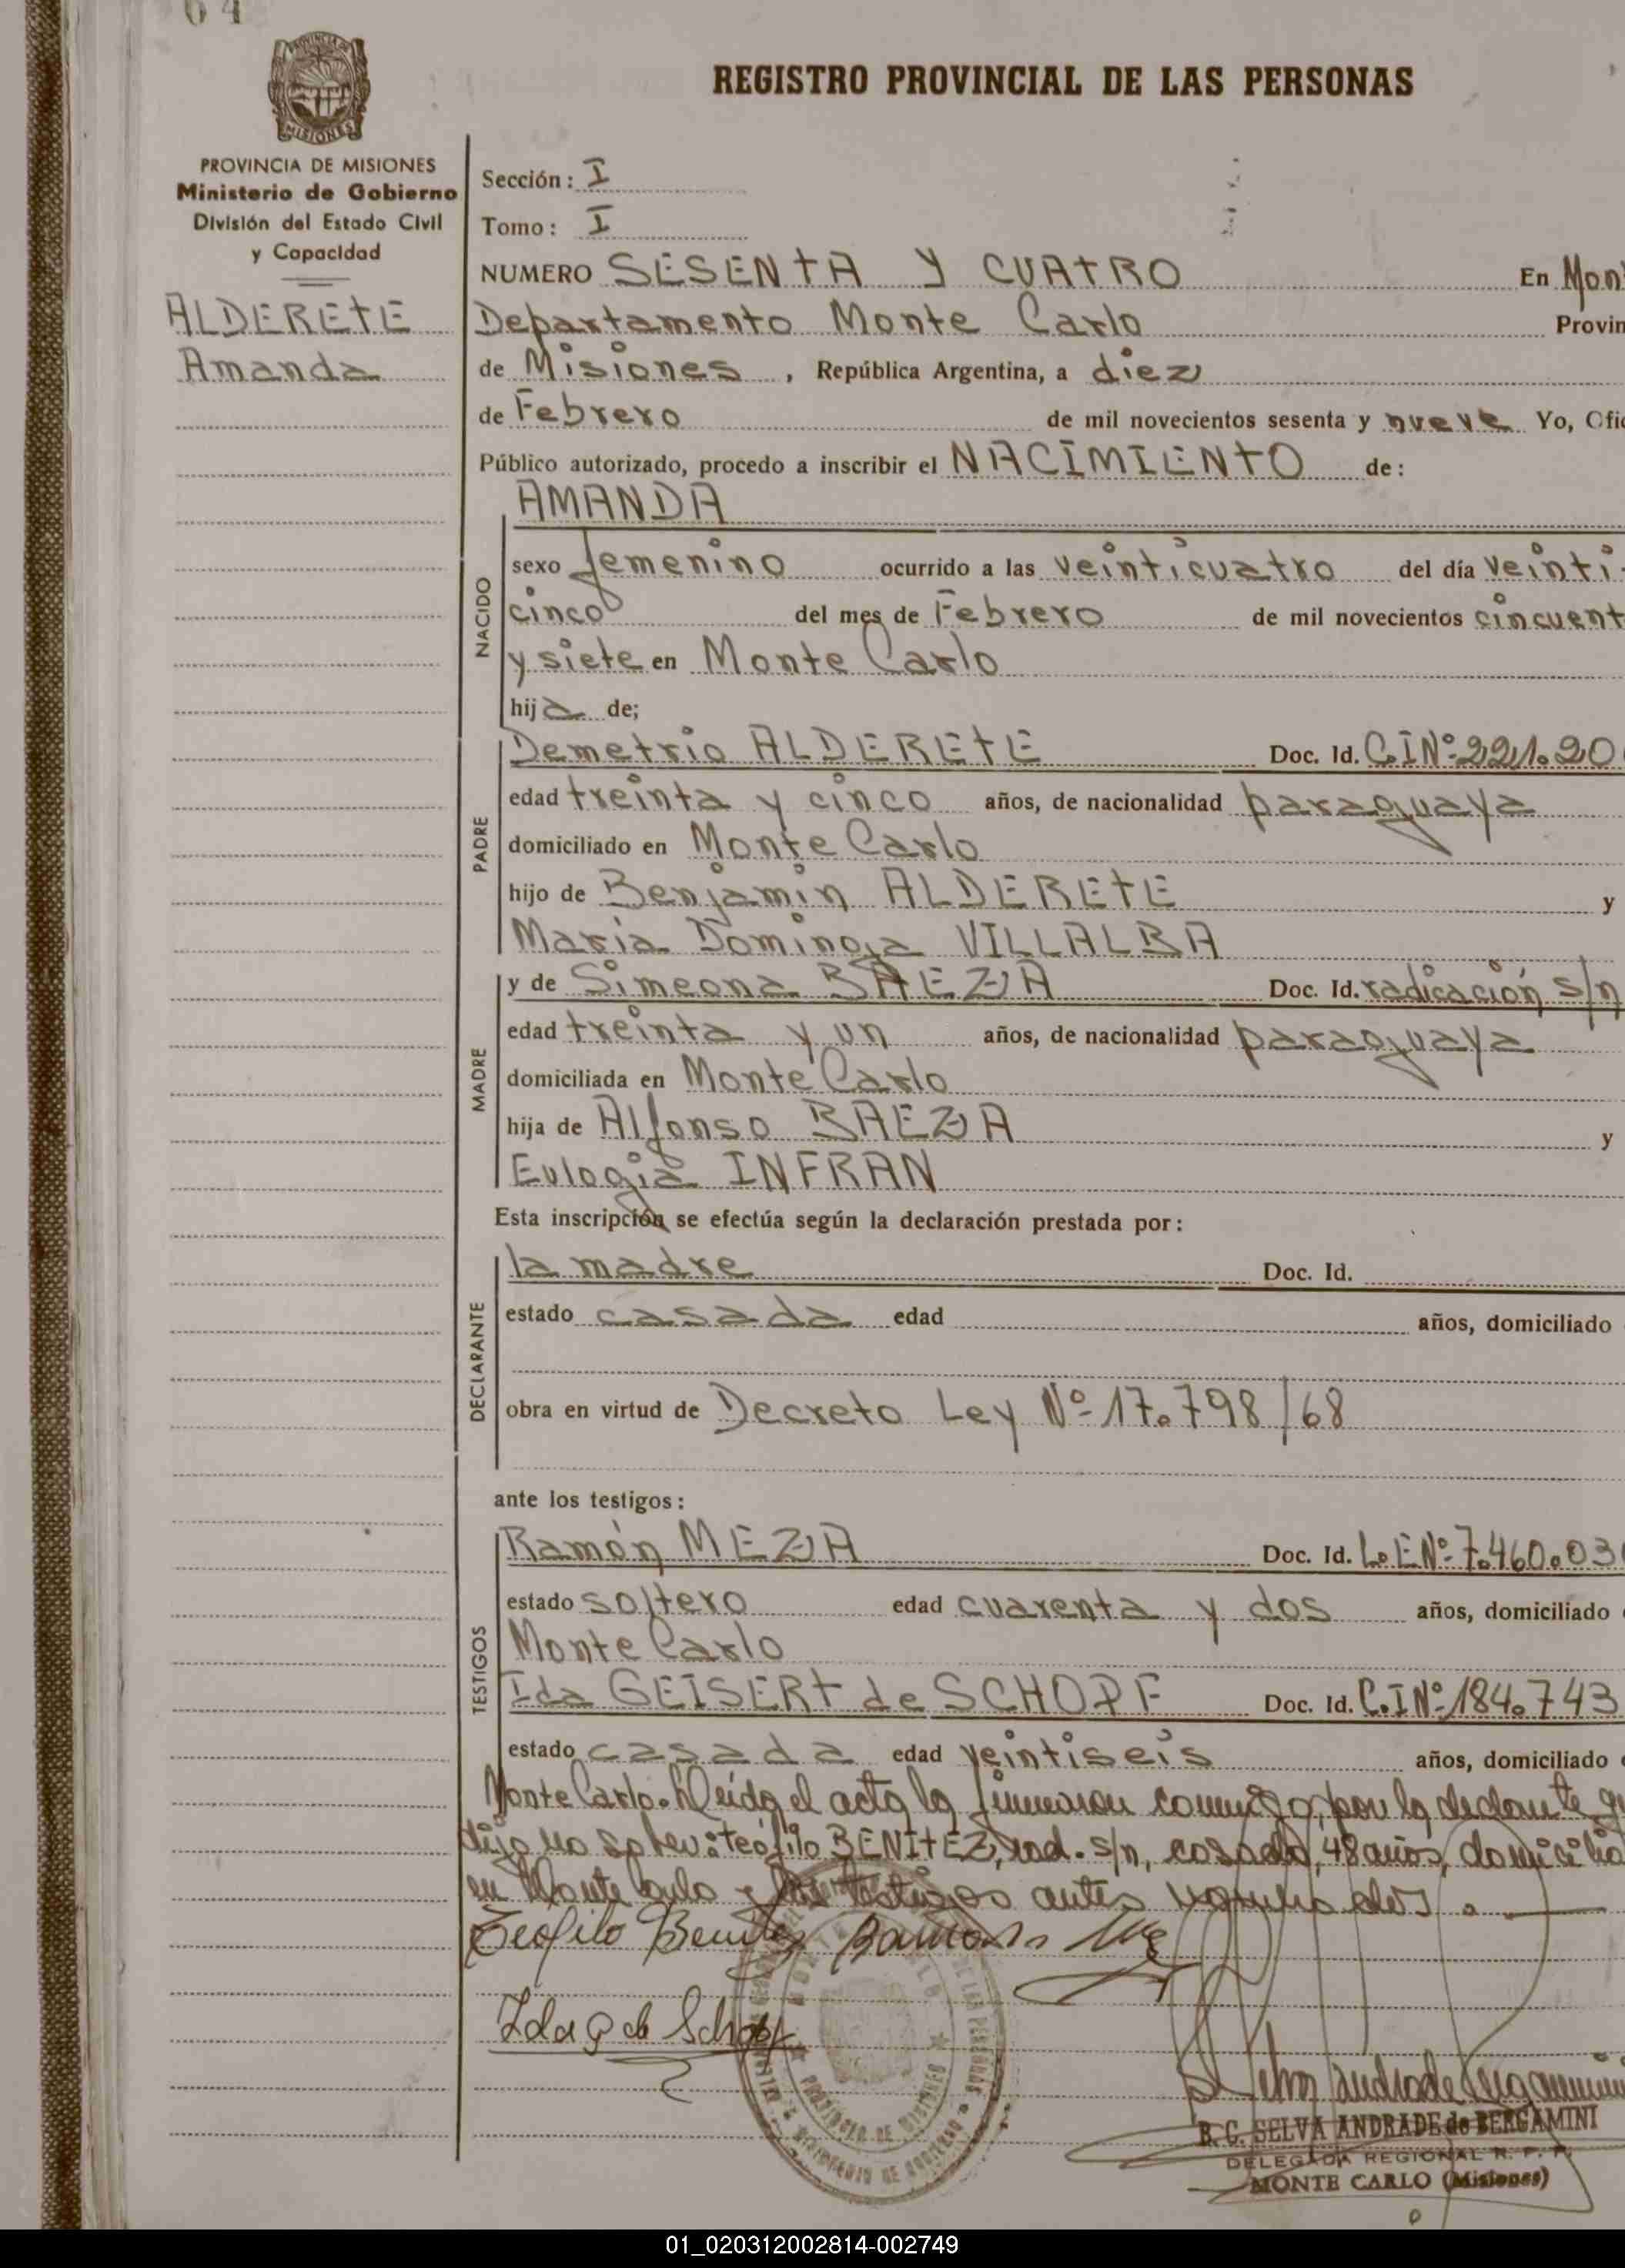 64
REGISTRO PROVINCIAL DE LAS PERSONAS
PROVINCIA DE MISIONES
Ministerio de Gobierno
División del Estado Civil
y Capacidad
ALDERETE
Amanda
Sección: I
Tomo: I
NUMERO SESENTA Y CUATRO En Mon
Departamento Monte Carlo Provin
de Misiones, República Argentina, a diez
de Febrero de mil novecientos sesenta y nueve Yo, Ofic
Público autorizado, procedo a inscribir el NACIMIENTO de:
AMANDA
NACIDO
sexo femenino ocurrido a las veinticuatro del día veinti
cinco del mes de Febrero de mil novecientos cincuent
y siete en Monte Carlo
hija de;
PADRE
Demetrio ALDERETE Doc. Id. C.I Nº 221.20
edad treinta y cinco años, de nacionalidad paraguaya
domiciliado en Monte Carlo
hijo de Benjamin ALDERETE y
María Dominga VILLALBA
MADRE
y de Simeona BAEZA Doc. Id. radicación s/n
edad treinta y un años, de nacionalidad paraguaya
domiciliada en Monte Carlo
hija de Alfonso BAEZA y
Eulogia INFRAN
Esta inscripción se efectúa según la declaración prestada por:
DECLARANTE
la madre Doc. Id.
estado casada edad años, domiciliado
obra en virtud de Decreto Ley Nº 17.798/68
ante los testigos:
TESTIGOS
Ramón MEZA Doc. Id. L.E Nº 7.460.03
estado soltero edad cuarenta y dos años, domiciliado
Monte Carlo
Ida GEISERT de SCHOPF Doc. Id. C.I Nº 184.743
estado casada edad veintiseis años, domiciliado
Monte Carlo. Leída el acta la firmaron conmigo, por la declarante q
dijo no saber: Teófilo BENITEZ, rad. s/n, casado, 48 años, domicilia
en Monte Carlo y los testigos antes nombrados.
Teofilo Benitez Ramon Meza
Ida G de Schopf
PROVINCIA DE MISIONES
MINISTERIO DE GOBIERNO
DE LAS PERSONAS
Selva Andrade Bergamini
B. G. SELVA ANDRADE de BERGAMINI
DELEGADA REGIONAL R. P. P.
MONTE CARLO (Misiones)
01_020312002814-002749